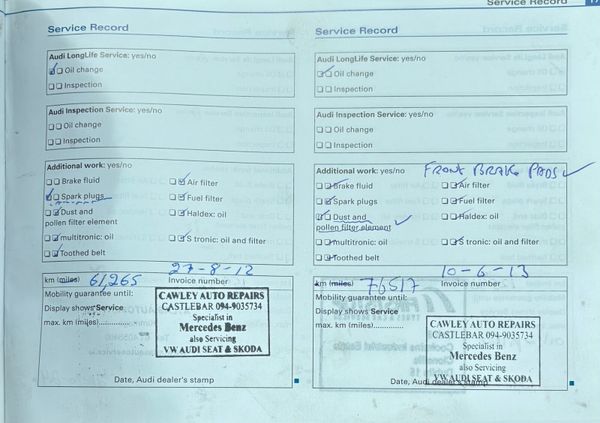 Service Record 17
Service Record
Audi LongLife Service: yes/no
Oil change
Inspection
Audi Inspection Service: yes/no
Oil change
Inspection
Additional work: yes/no
Brake fluid
Air filter
Spark plugs
Fuel filter
Dust and
pollen filter element
Haldex: oil
multitronic: oil
S tronic: oil and filter
Toothed belt
km (miles) 61,265
27-8-12
Invoice number
Mobility guarantee until:
Display shows Service
max. km (miles)..............
CAWLEY AUTO REPAIRS
CASTLEBAR 094-9035734
Specialist in
Mercedes Benz
also Servicing
VW AUDI SEAT & SKODA
Date, Audi dealer's stamp
Service Record
Audi LongLife Service: yes/no
Oil change
Inspection
Audi Inspection Service: yes/no
Oil change
Inspection
Additional work: yes/no
FRONT BRAKE PADS
Brake fluid
Air filter
Spark plugs
Fuel filter
Dust and
pollen filter element
Haldex: oil
multitronic: oil
S tronic: oil and filter
Toothed belt
km (miles) 76517
10-6-13
Invoice number
Mobility guarantee until:
Display shows Service
max. km (miles)..............
CAWLEY AUTO REPAIRS
CASTLEBAR 094-9035734
Specialist in
Mercedes Benz
also Servicing
VW AUDI SEAT & SKODA
Date, Audi dealer's stamp